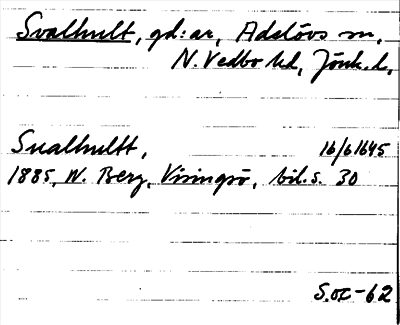 Svalhult, gd:ar, Adelövs sn,
N. Vedbo hd, Jönk. l.
Sualhultt, 16/6 1645
1885, W. Berg, Visingsö, bil. s. 30
S.OC-62